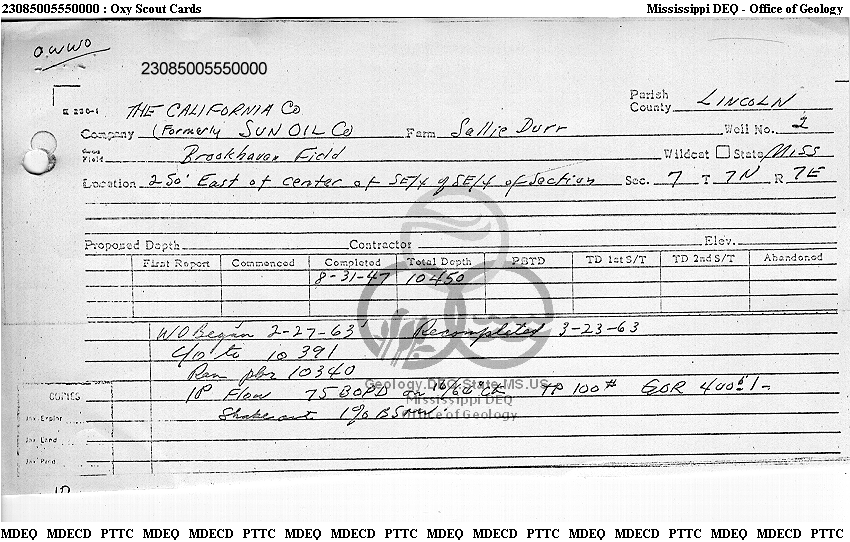 23085005550000 : Oxy Scout Cards Mississippi DEQ - Office of Geology
O.W.W.O
23085005550000
THE CALIFORNIA Co
Parish
County LINCOLN
Company (Formerly SUN OIL Co Farm Sallie Durr Well No. 2
Field Brookhaven Field Wildcat State Miss
Location 250' East of center of SE/4 of SE/4 of Section Sec. 7 T 7N R 7E
Proposed Depth Contractor Elev.
First Report Commenced Completed Total Depth PBTD TD 1st S/T TD 2nd S/T Abandoned
8-31-47 10450
WO Began 2-27-63 Recompleted 3-23-63
C/O to 10391
Ran pkr 10340
IP Flow 75 BOPD on TP 100# GOR 400/1-
Geology.DEQ.State.MS.US
COPIES
Mississippi DEQ
Shakeout 1% BS
Office of Geology
Jax. Explor
Jax. Land
Jax. Prod
MDEQ MDECD PTTC MDEQ MDECD PTTC MDEQ MDECD PTTC MDEQ MDECD PTTC MDEQ MDECD PTTC MDEQ MDECD PTTC